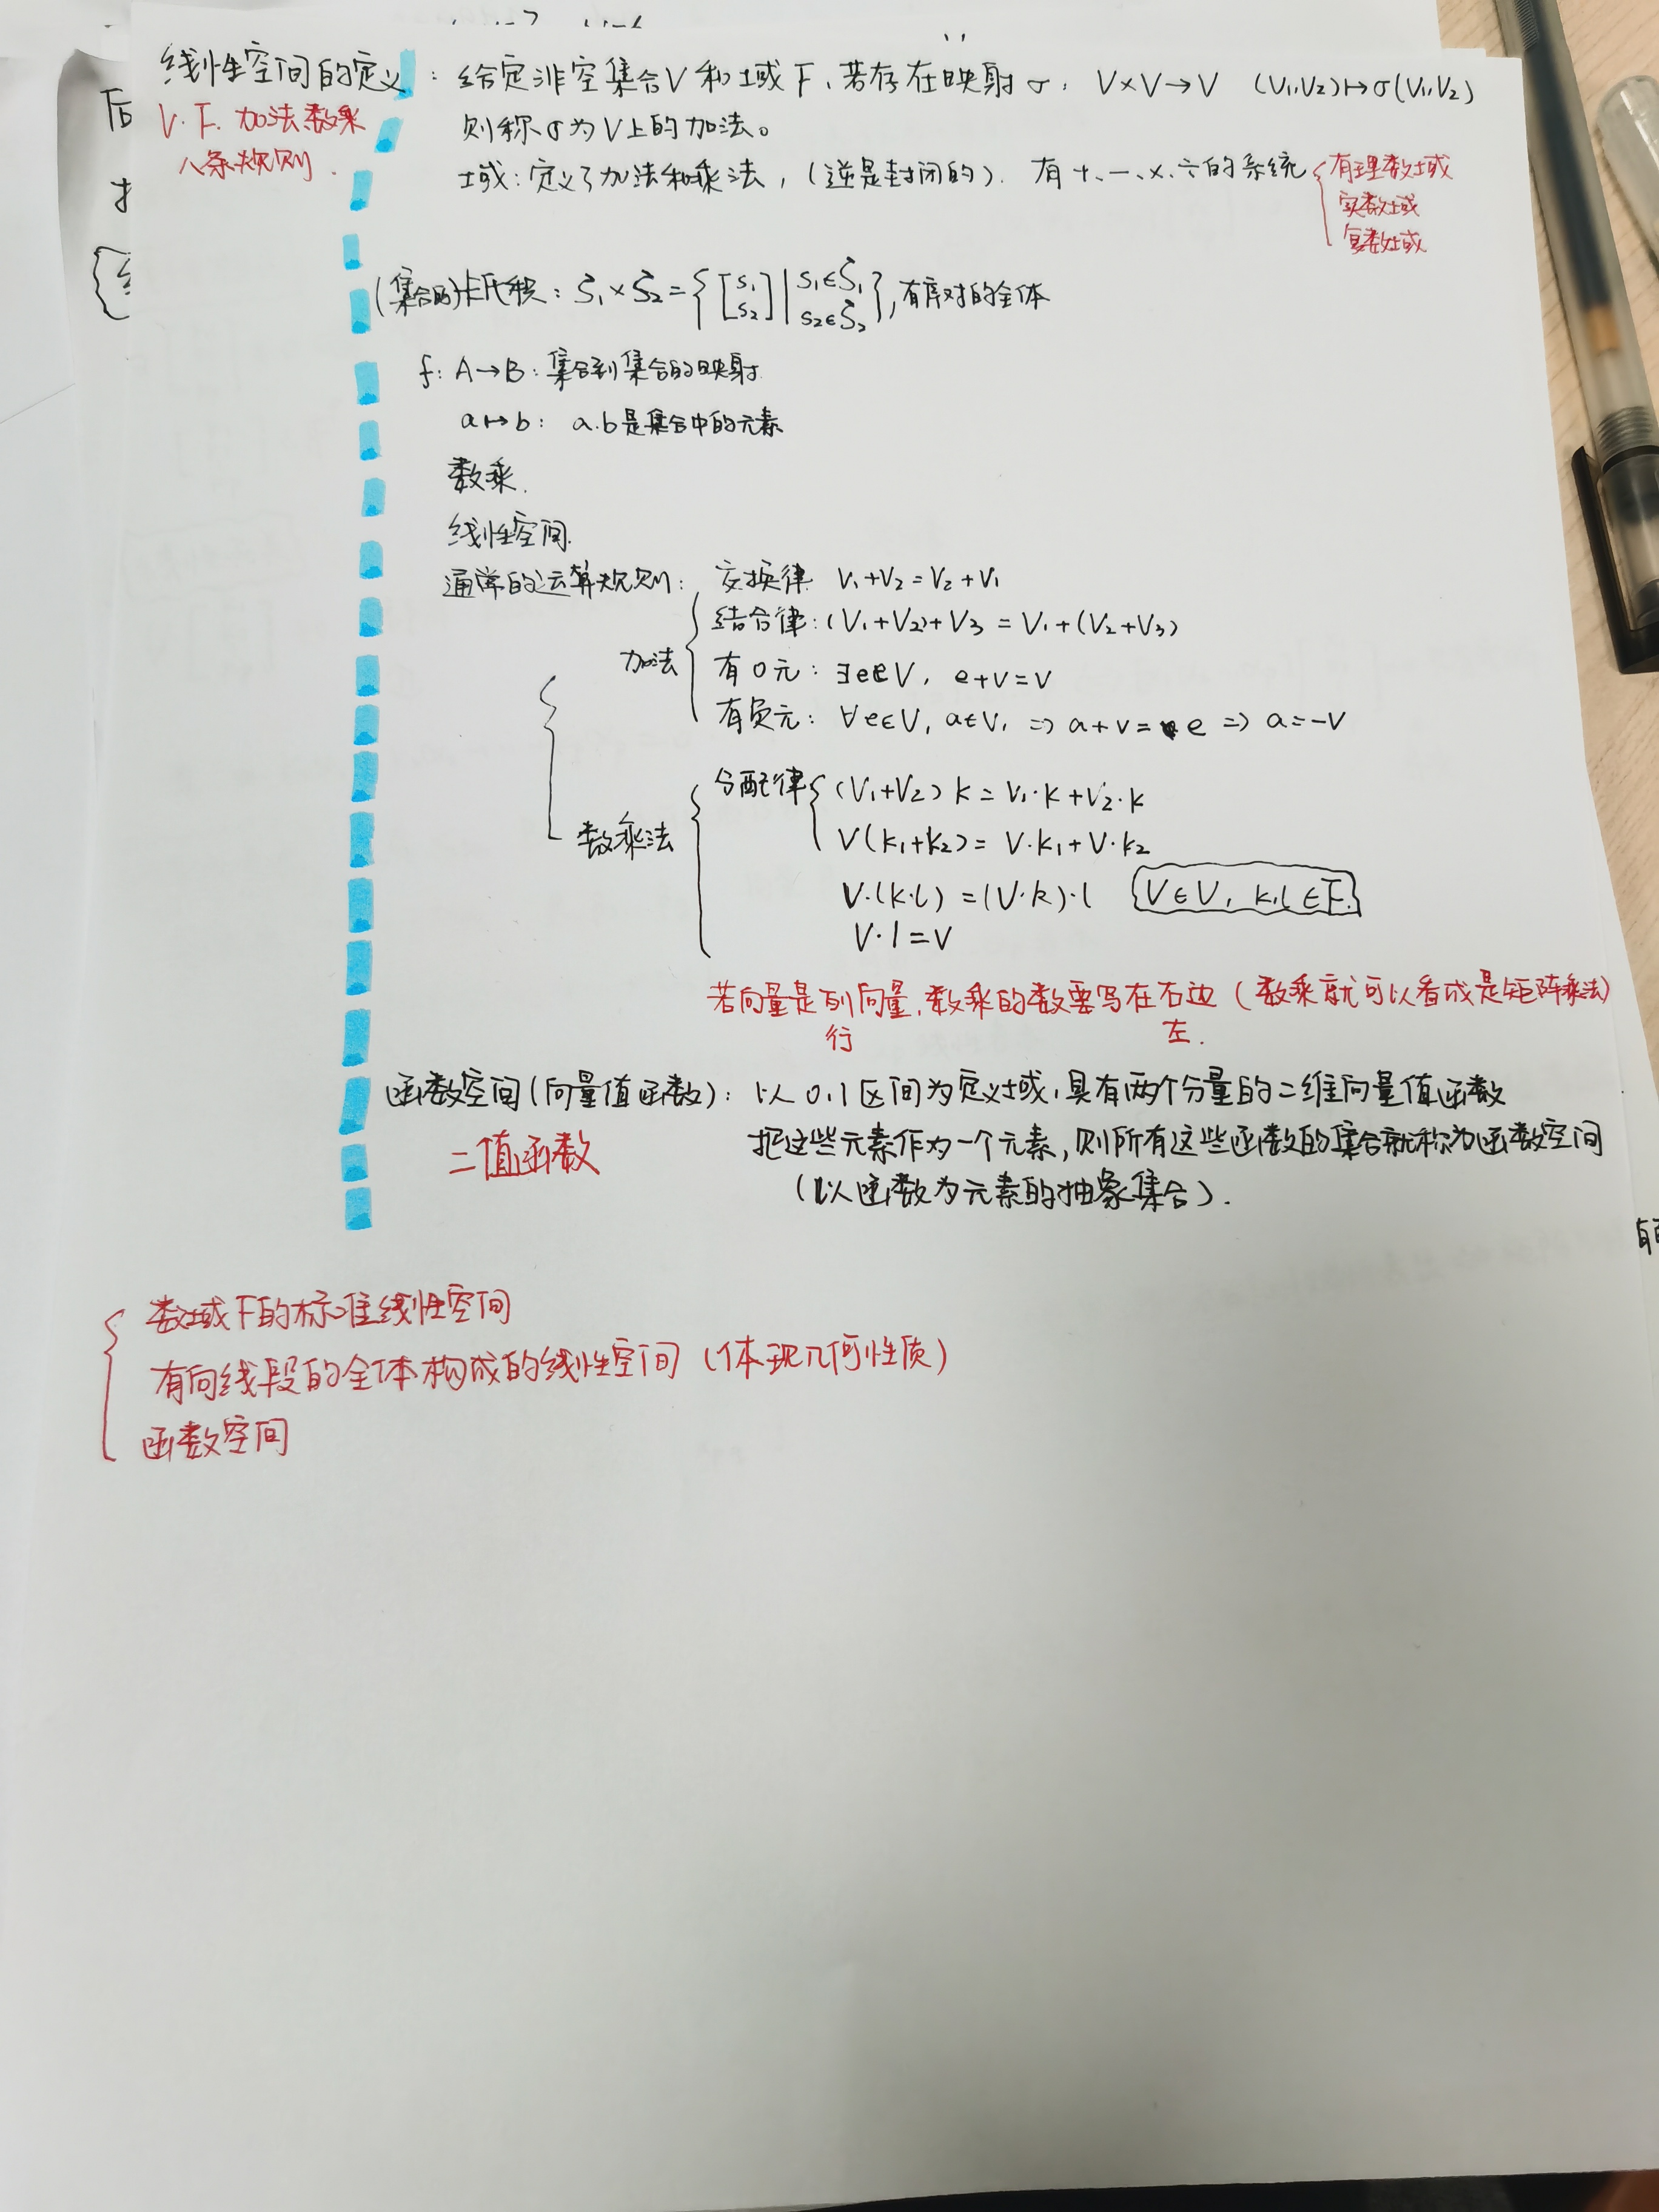 线性空间的定义：给定非空集合V和域F，若存在映射σ，V×V→V (V₁,V₂)↦σ(V₁,V₂)
V. F. 加法数乘
则称σ为V上的加法。
八条规则.
域：定义了加法和乘法，(逆是封闭的). 有+、-、×、÷的系统
有理数域
实数域
复数域
(集合的)卡氏积：S₁×S₂={[s₁ s₂]|s₁∈S₁ s₂∈S₂}，有序对的全体
f: A→B：集合到集合的映射.
a↦b： a.b是集合中的元素
数乘.
线性空间.
通常的运算规则：
加法
交换律 V₁+V₂=V₂+V₁
结合律：(V₁+V₂)+V₃=V₁+(V₂+V₃)
有0元：∃e∈V, e+v=v
有负元：∀e∈V, a∈V, ⇒a+v=e⇒a=-v
数乘法
分配律
(V₁+V₂)k=V₁·k+V₂·k
V(k₁+k₂)=V·k₁+V·k₂
V·(k·l)=(V·k)·l V∈V, k,l∈F.
V·1=V
若向量是列向量，数乘的数要写在右边(数乘就可以看成是矩阵乘法)
行 左.
函数空间(向量值函数)：以0,1区间为定义域，具有两个分量的二维向量值函数
二值函数
把这些元素作为一个元素，则所有这些函数的集合就称为函数空间
(以函数为元素的抽象集合).
数域F的标准线性空间
有向线段的全体构成的线性空间(体现几何性质)
函数空间